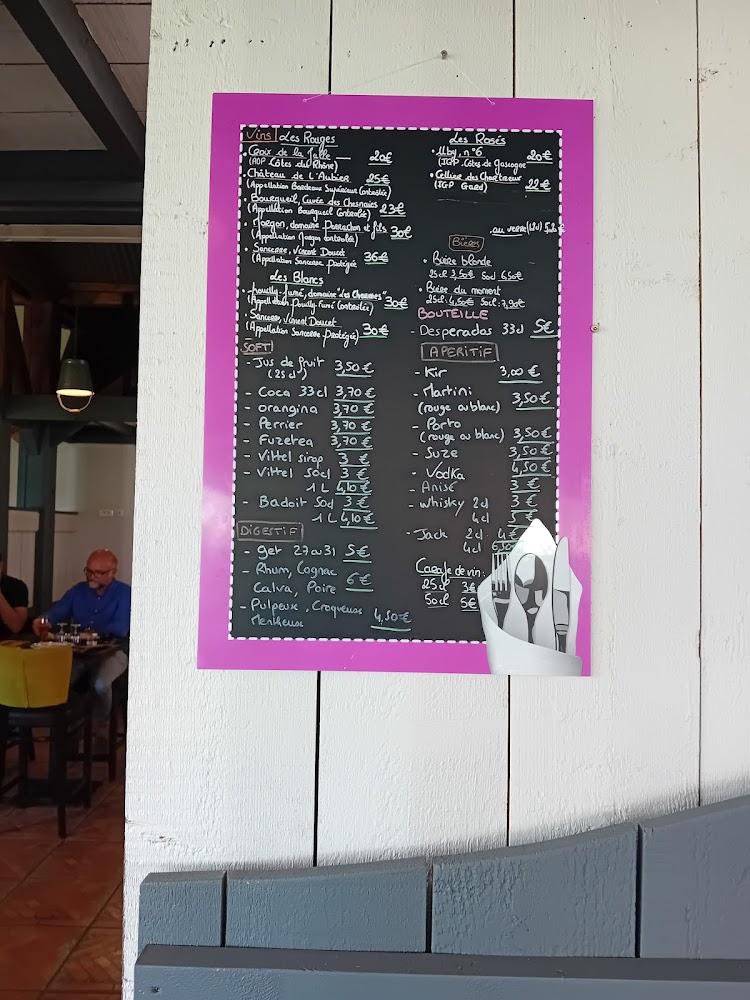 Vins Les Rouges
Croix de la 20€
(AOP Côtes du Rhône)
Château de L'Aubier 25€
(Appellation Bordeaux Supérieur Controlée)
Bourgueil, Cuvée des Chesnaies 23€
(Appellation Bourgueil Controlée)
Morgon, domaine et fils 30€
(Appellation Morgon controlée)
Sancerre, Vincent Doucet 36€
(Appellation Sancerre Protégée
Les Blancs
Pouilly-fumé, domaine "des Charmes" 30€
(Appellation Pouilly-Fumé Controlée)
Sancerre, Vincent Doucet 30€
(Appellation Sancerre Protégée)
SOFT
- Jus de fruit 3,50€
(25cl)
- Coca 33cl 3,70€
- orangina 3,70€
- Perrier 3,70€
- Fuzetea 3,70€
- Vittel sirop 3€
- Vittel 50cl 3€
1L 4,10€
- Badoit 50cl 3€
1L 4,10€
DIGESTIF
- get 27 ou 31 5€
- Rhum, Cognac 6€
Calva, Poire
- Pulpeuse, Croqueuse 4,50€
Mentheuse
Les Rosés
Uby, n°6 20€
(IGP Côtes de Gascogne
Cellier des Chartreux 22€
(IGP Gard)
au verre
Bières
Bière blonde
25cl 3,50€ 50cl 6,50€
Bière du moment
25cl: 4,50€ 50cl: 7,90€
BOUTEILLE
- Desperados 33cl 5€
APERITIF
- Kir 3,00€
- Martini 3,50€
(rouge ou blanc)
- Porto
(rouge ou blanc) 3,50€
- Suze 3,50€
- Vodka 4,50€
- Anisé 3€
- whisky 2cl 3€
4cl 5€
- Jack 2cl 4€
4cl 6,50
Carafe de vin:
25cl 3€
50cl 5€